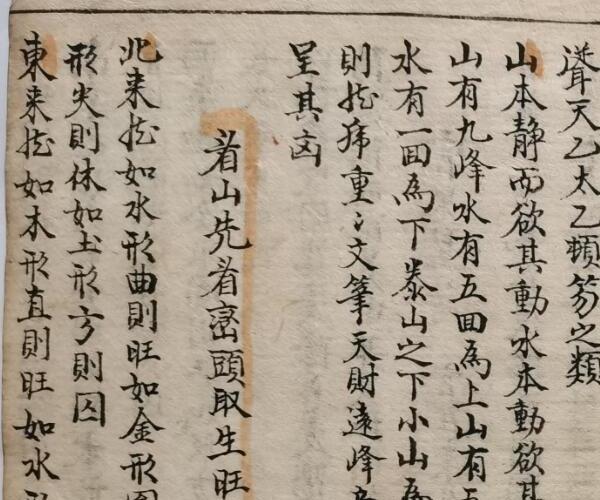 聳天乙太乙頓笏之類
山本静而欲其動水本動欲其
山有九峰水有五囬為上山有
水有一囬為下泰山之下小山為
則於歸重〻文筆天財遠峰
呈其凶
看山先看巒頭取生旺
北来於如水形曲則旺如金形
形尖則休如土形方則囚
東来於如木形直則旺如水形